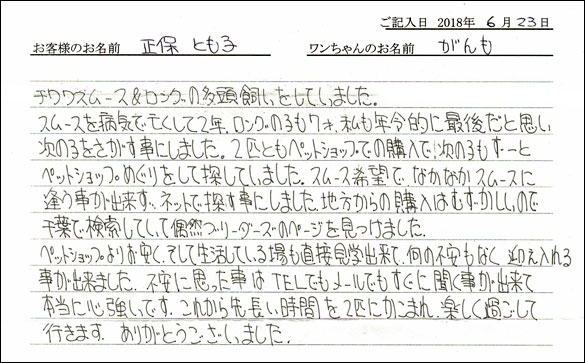 ご記入日 2018年 6月23日
お客様のお名前 正保 とも子 ワンちゃんのお名前 がんも
チワワスムース&ロングの多頭飼いをしていました。
スムースを病気で亡くして2年、ロングの子も7才、私も年令的に最後だと思い
次の子をさがす事にしました。2匹ともペットショップでの購入で次の子もずーっと
ペットショップめぐりをして探していました。スムース希望でなかなかスムースに
逢う事が出来ず、ネットで探す事にしました。地方からの購入はむずかしいので
千葉で検索してして偶然ブリーダーズのページを見つけました。
ペットショップよりお安く、そして生活している場も直接見学出来て、何の不安もなく迎え入れる
事が出来ました。不安に思った事はTELでもメールでもすぐに聞く事が出来て
本当に心強いです。これから先長い時間を2匹にかこまれ、楽しく過ごして
行きます。ありがとうございました。